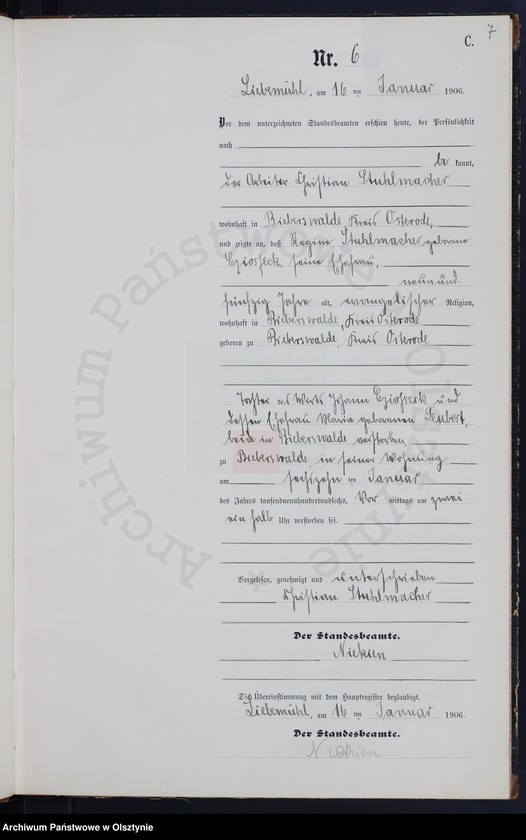 7
C.
Nr. 6
Liebemühl, am 16 ten Januar 1906.
Vor dem unterzeichneten Standesbeamten erschien heute, der Persönlichkeit
nach
be kannt,
der Arbeiter Christian Stuhlmacher
wohnhaft in Bieberswalde, Kreis Osterode,
und zeigte an, daß Regine Stuhlmacher geborene
Czioseck, seine Ehefrau,
neun und
fünfzig Jahre alt, evangelischer Religion,
wohnhaft in Bieberswalde, Kreis Osterode
geboren zu Bieberswalde, Kreis Osterode
Tochter des Wirts Johann Czioseck und
dessen Ehefrau Maria geborenen Seubert,
beide in Bieberswalde verstorben,
zu Bieberswalde, in seiner Wohnung
am sechszehn ten Januar
des Jahres tausendneunhundertundsechs, Vor mittags um zwei
ein halb Uhr verstorben sei.
Vorgelesen, genehmigt und unterschrieben
Christian Stuhlmacher
Der Standesbeamte.
Nieksien
Die Übereinstimmung mit dem Hauptregister beglaubigt.
Liebemühl, am 16 ten Januar 1906.
Der Standesbeamte.
Nieksien
Archiwum Państwowe w Olsztynie
Archiwum Państwowe w Olsztynie